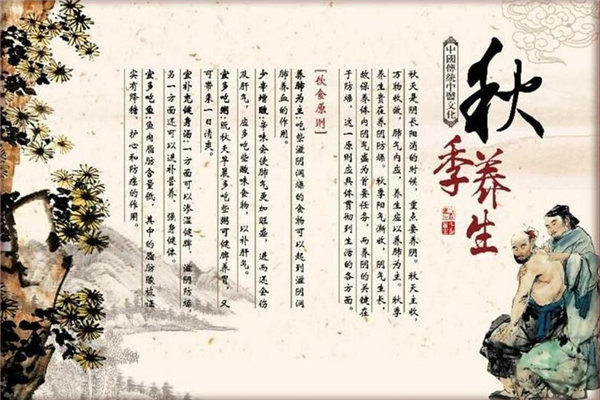 秋季养生
中國傳統中醫文化
秋天是阴长阳消的时候，重点要养阴。秋天主收，
万物收敛，肺气内应，养生应以养肺为主。秋季
养生贵在养阴防燥。秋季阳气渐收，阴气生长，
故保养体内阴气成为首要任务，而养阴的关键在
于防燥，这一原则应具体贯彻到生活的各方面。
[饮食原则]
养肺为主:吃些滋阴润燥的食物可以起到滋阴润
肺养血的作用。
少辛增酸:辛味会使肺气更加旺盛，进而还会伤
及肝气，应多吃些酸味食物，以补肝气。
宜多吃粥:既秋天早晨多吃些粥可健脾养胃，又
可带来一日清爽。
宜补充健身汤:一方面可以渗湿健脾，滋阴防燥，
另一方面还可以进补营养、强身健体。
宜多吃鱼:鱼肉脂肪含量低，其中的脂肪酸被证
实有降糖、护心和防癌的作用。